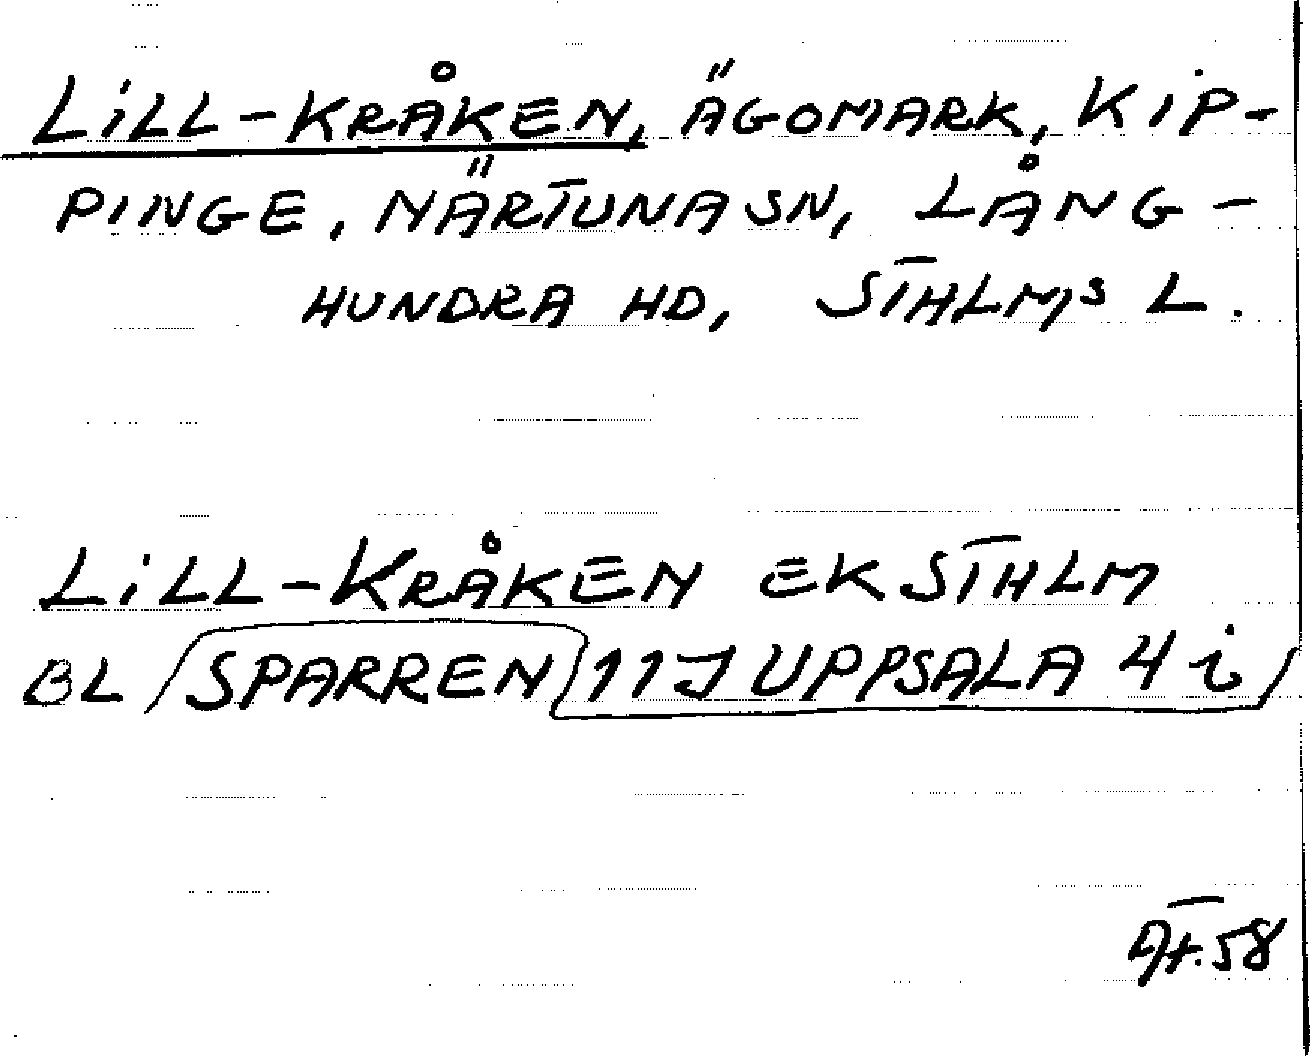 LILL-KRÅKEN, ÄGOMARK, KIP-
PINGE, NÄRTUNA SN, LÅNG-
HUNDRA HD, STHLMS L.
LILL-KRÅKEN EK STHLM
BL (SPARREN) 11J UPPSALA 4i
58